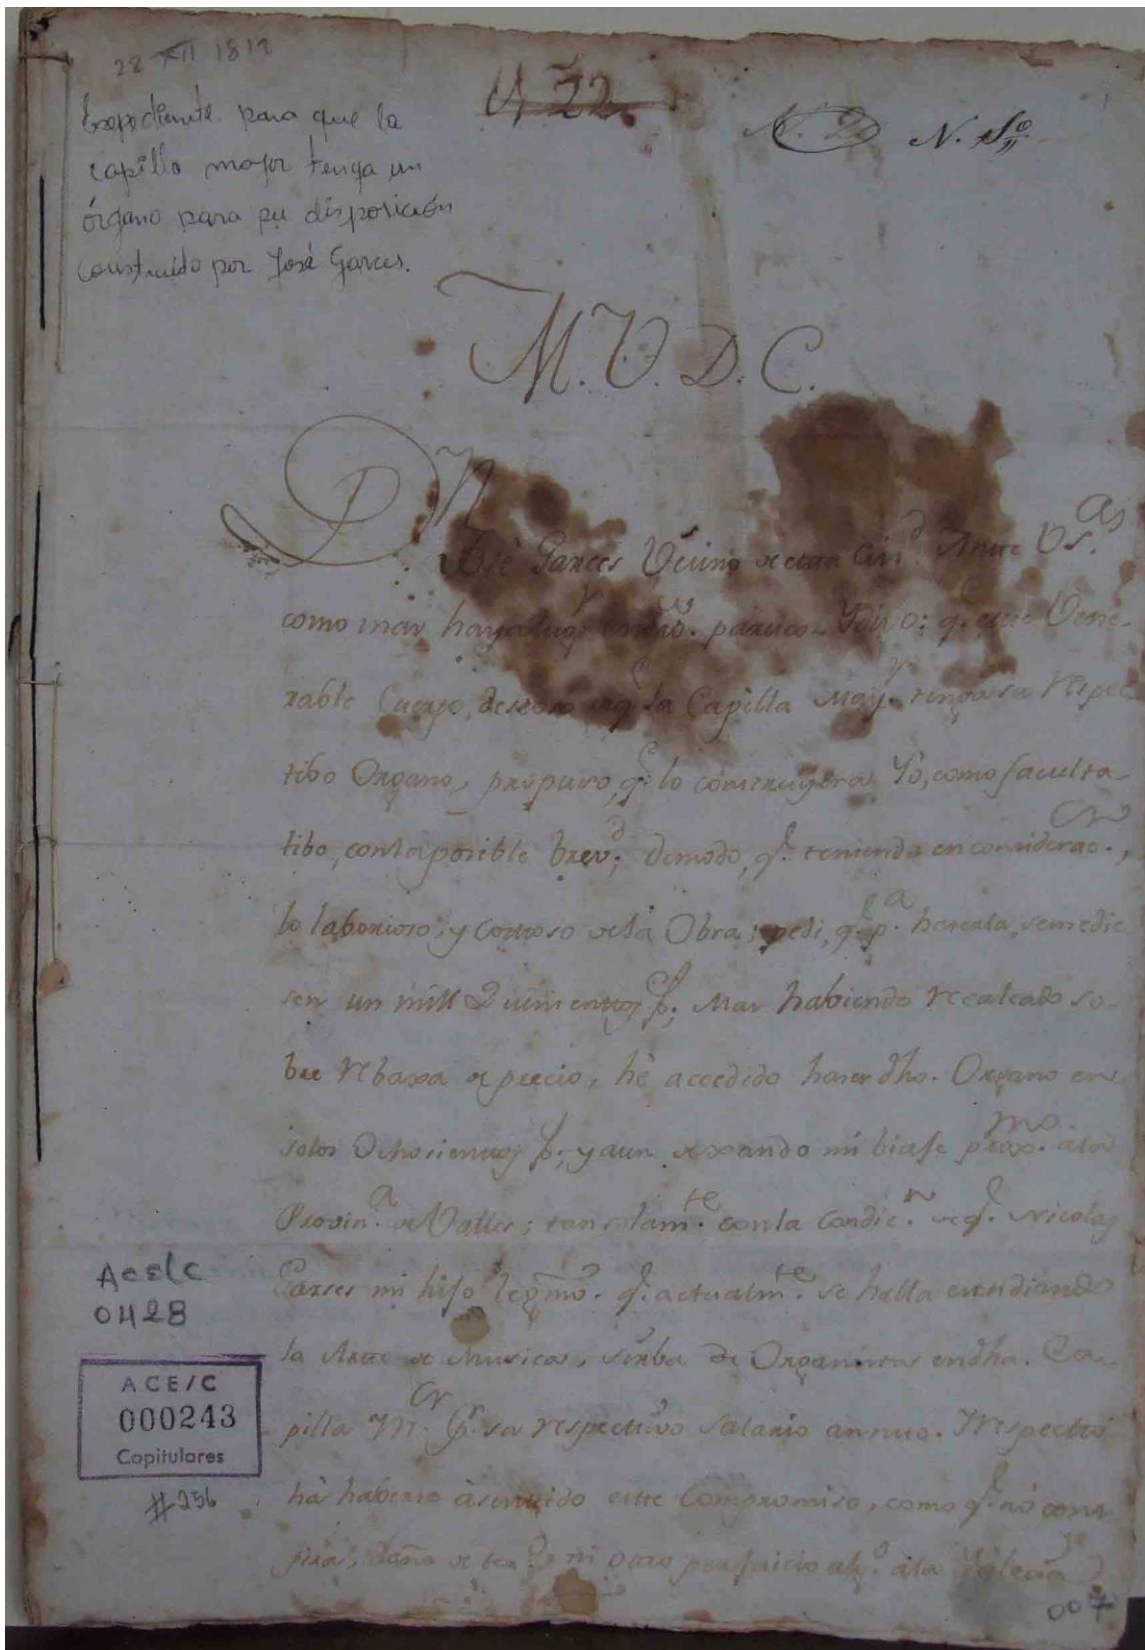 22 XII 1812
Expediente para que la
capilla mayor tenga un
órgano para su disposición
construido por José Garces.
N. 2 N. 
M. V. D. C.
Dn
José Garces Vecino de esta Ciud. Ante VS.as
como mas haya lugr en dro. paresco y digo: q.e este Vene-
rable Cuerpo, deseoso de q.e la Capilla May.r tenga su respec
tibo Organo, propuso, q.e lo construyera Yo, como faculta-
tibo, con la posible brev.d; demodo, q.e teniendo en considerac.on,
lo laborioso, y costoso de la Obra; pedi, q.e p.a hacerla, semedie
sen un mill Quinientos p.s; Mas habiendo recalcado so-
bre rebaxa de precio, hè accedido haser dho. Organo en
solos Ochosientos p.s; y aun dexando mi biaje prox.mo a los
Provin.a de Valles; tan solam.te con la Condic.n de q.e Nicolas
Garces mi hijo legmo. q.e actualm.te se halla estudiando
la Arte de Musica, sirba de Organista en dha. Ca-
pilla M.or p.r su respectivo salario annuo. Respecto
hà haberse àsentido este Compromiso, como q.e no conv
fixa, daño de ter.o ni otro perjuicio alg.o àla Yglecia
Acelc
0428
ACE/C
000243
Capitulares
#256
007